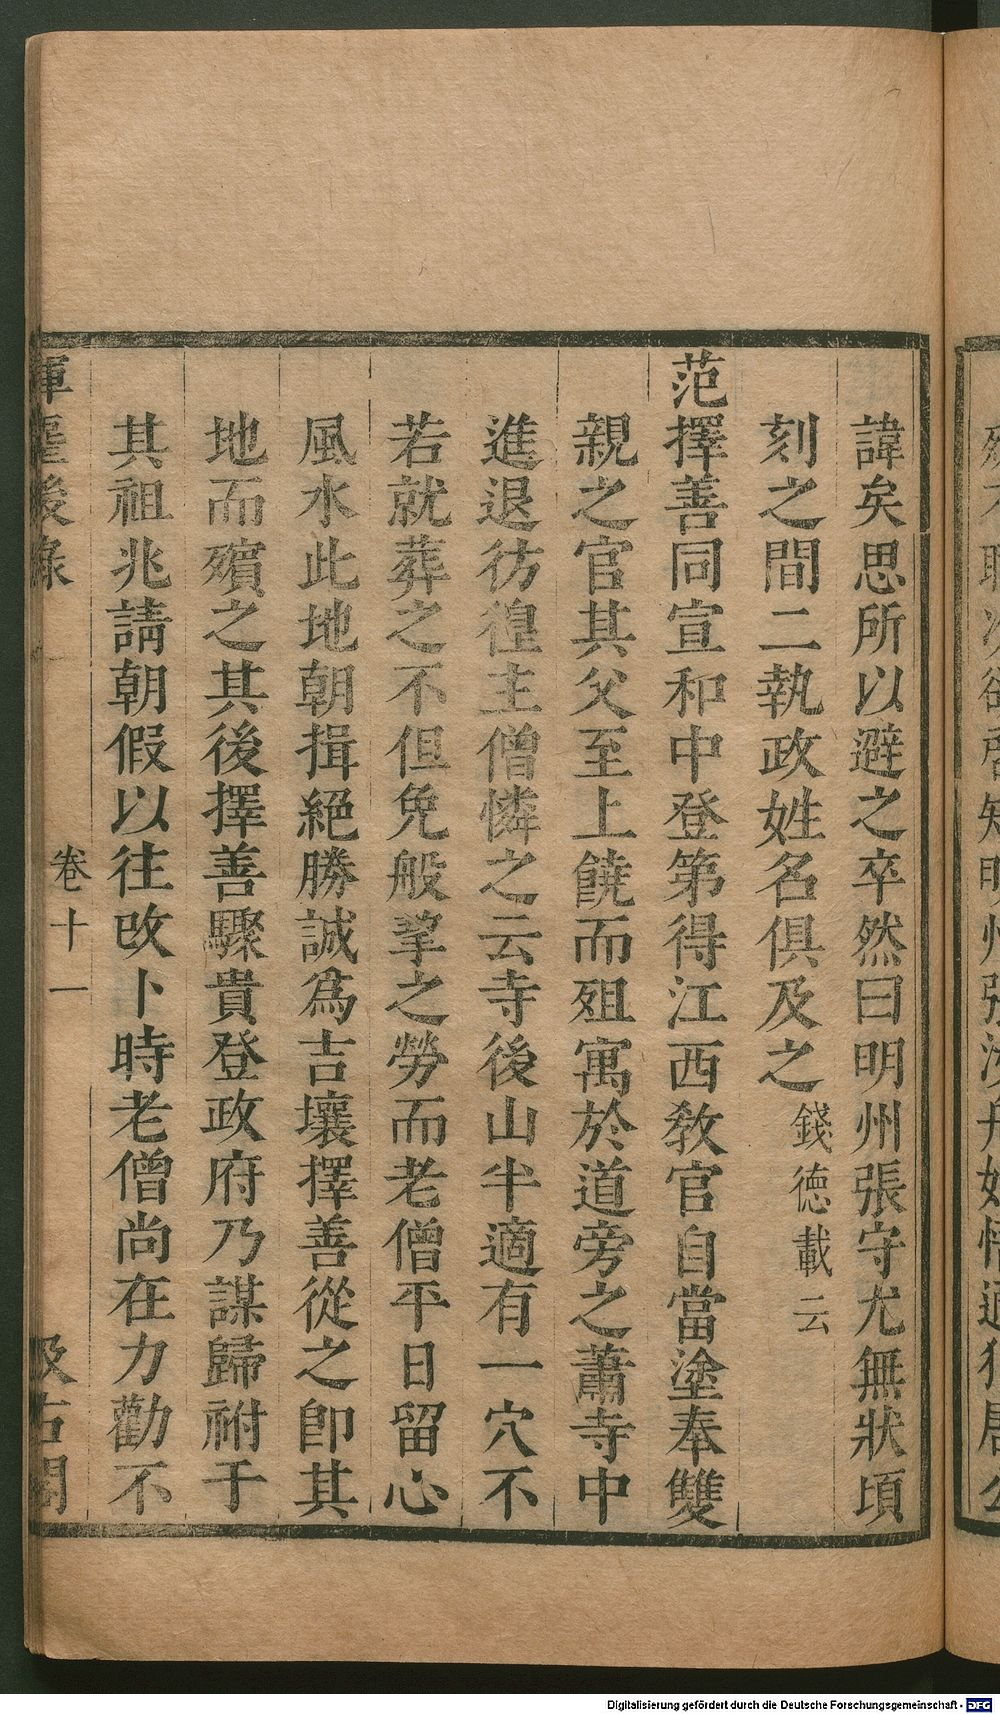 諱矣思所以避之卒然曰明州張守尤無狀頃
刻之間二執政姓名俱及之錢徳載云
范擇善同宣和中登第得江西敎官自當塗奉雙
親之官其父至上饒而殂寓於道旁之蕭寺中
進退彷徨主僧憐之云寺後山半適有一穴不
若就葬之不但免般挈之勞而老僧平日留心
風水此地朝揖絕勝誠爲吉壤擇善從之卽其
地而殯之其後擇善驟貴登政府乃謀歸祔于
其祖兆請朝假以往改卜時老僧尚在力勸不
後錄 卷十一 汲古閣
Digitalisierung gefördert durch die Deutsche Forschungsgemeinschaft - DFG